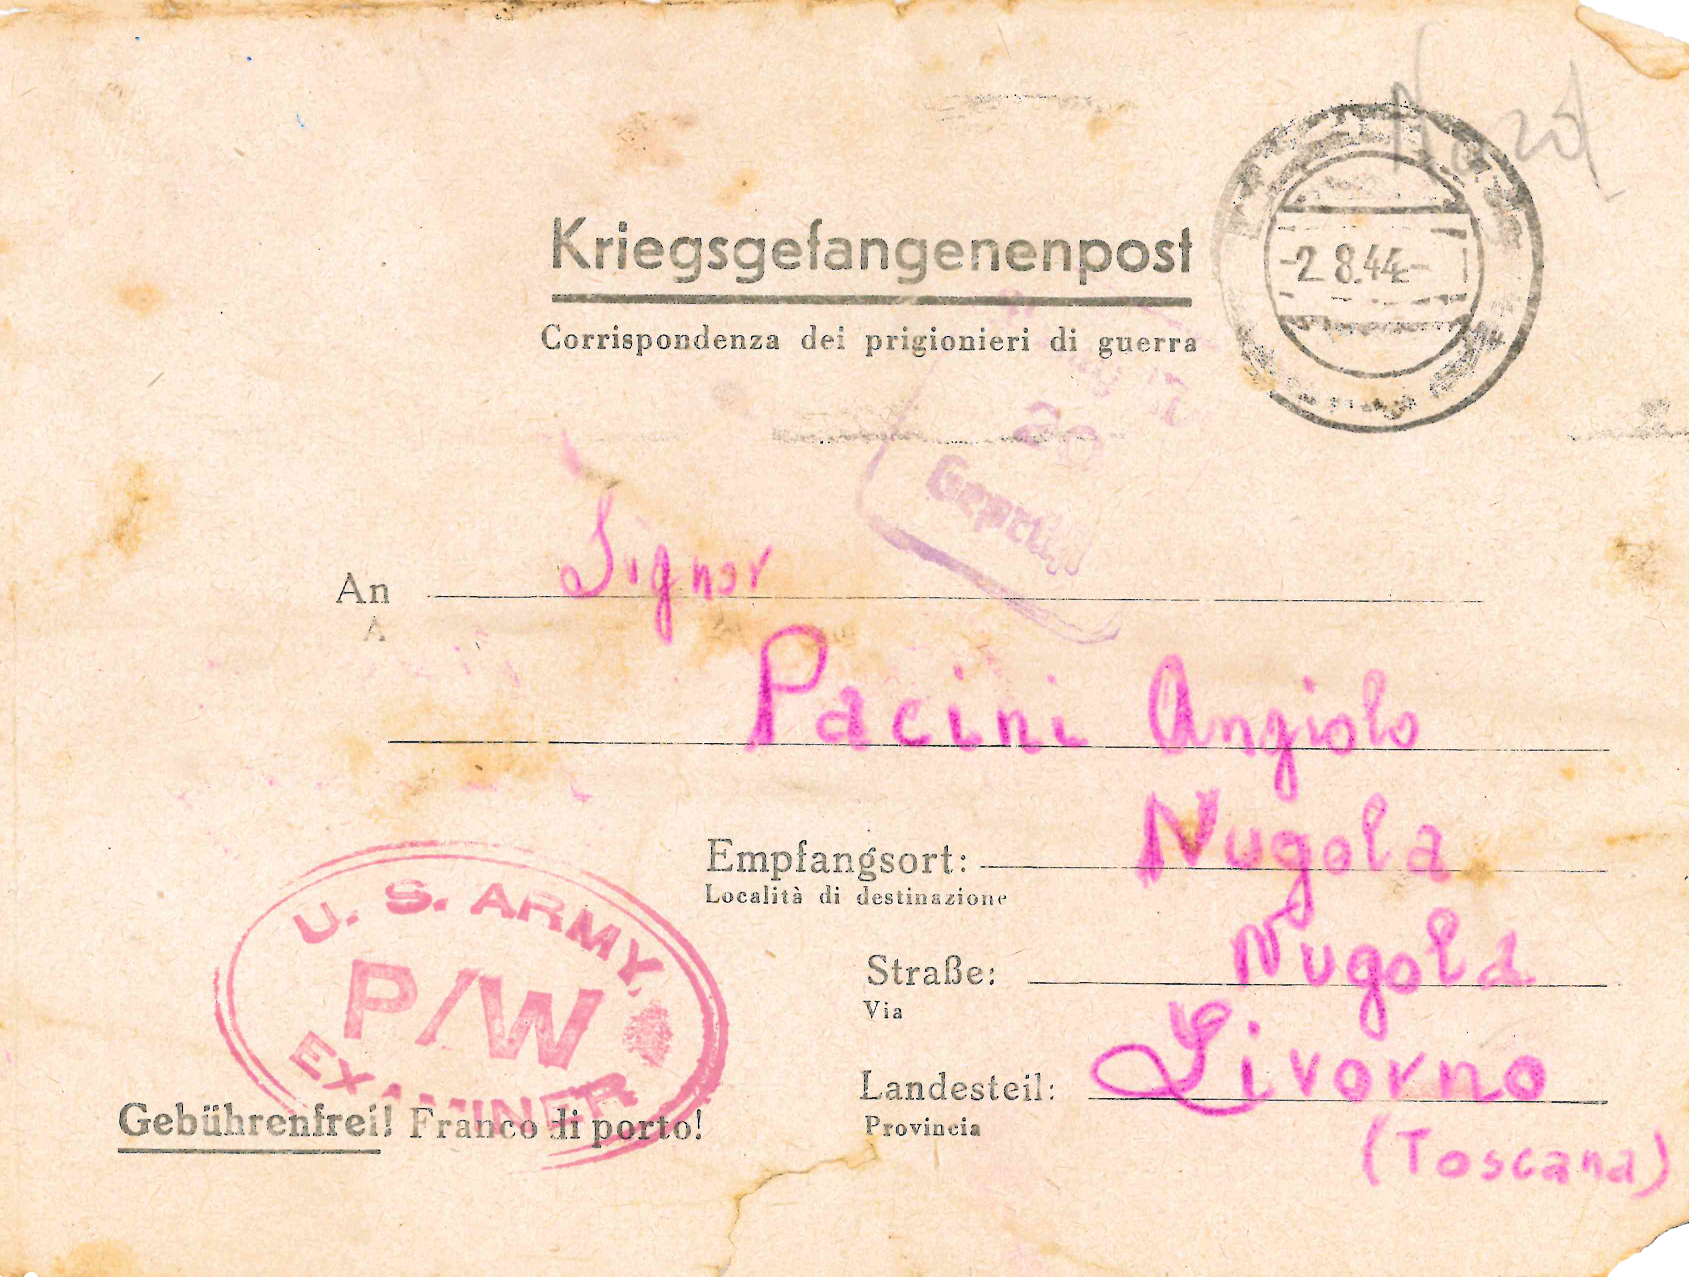 Nord
Kriegsgefangenenpost
Corrispondenza dei prigionieri di guerra
-2.8.44-
20
Geprüft
An Signor
A
Pacini Angiolo
Empfangsort: Nugola
Località di destinazione
Straße: Nugola
Via
Landesteil: Livorno
Provincia
(Toscana)
U. S. ARMY
P/W
EXAMINER
Gebührenfrei! Franco di porto!